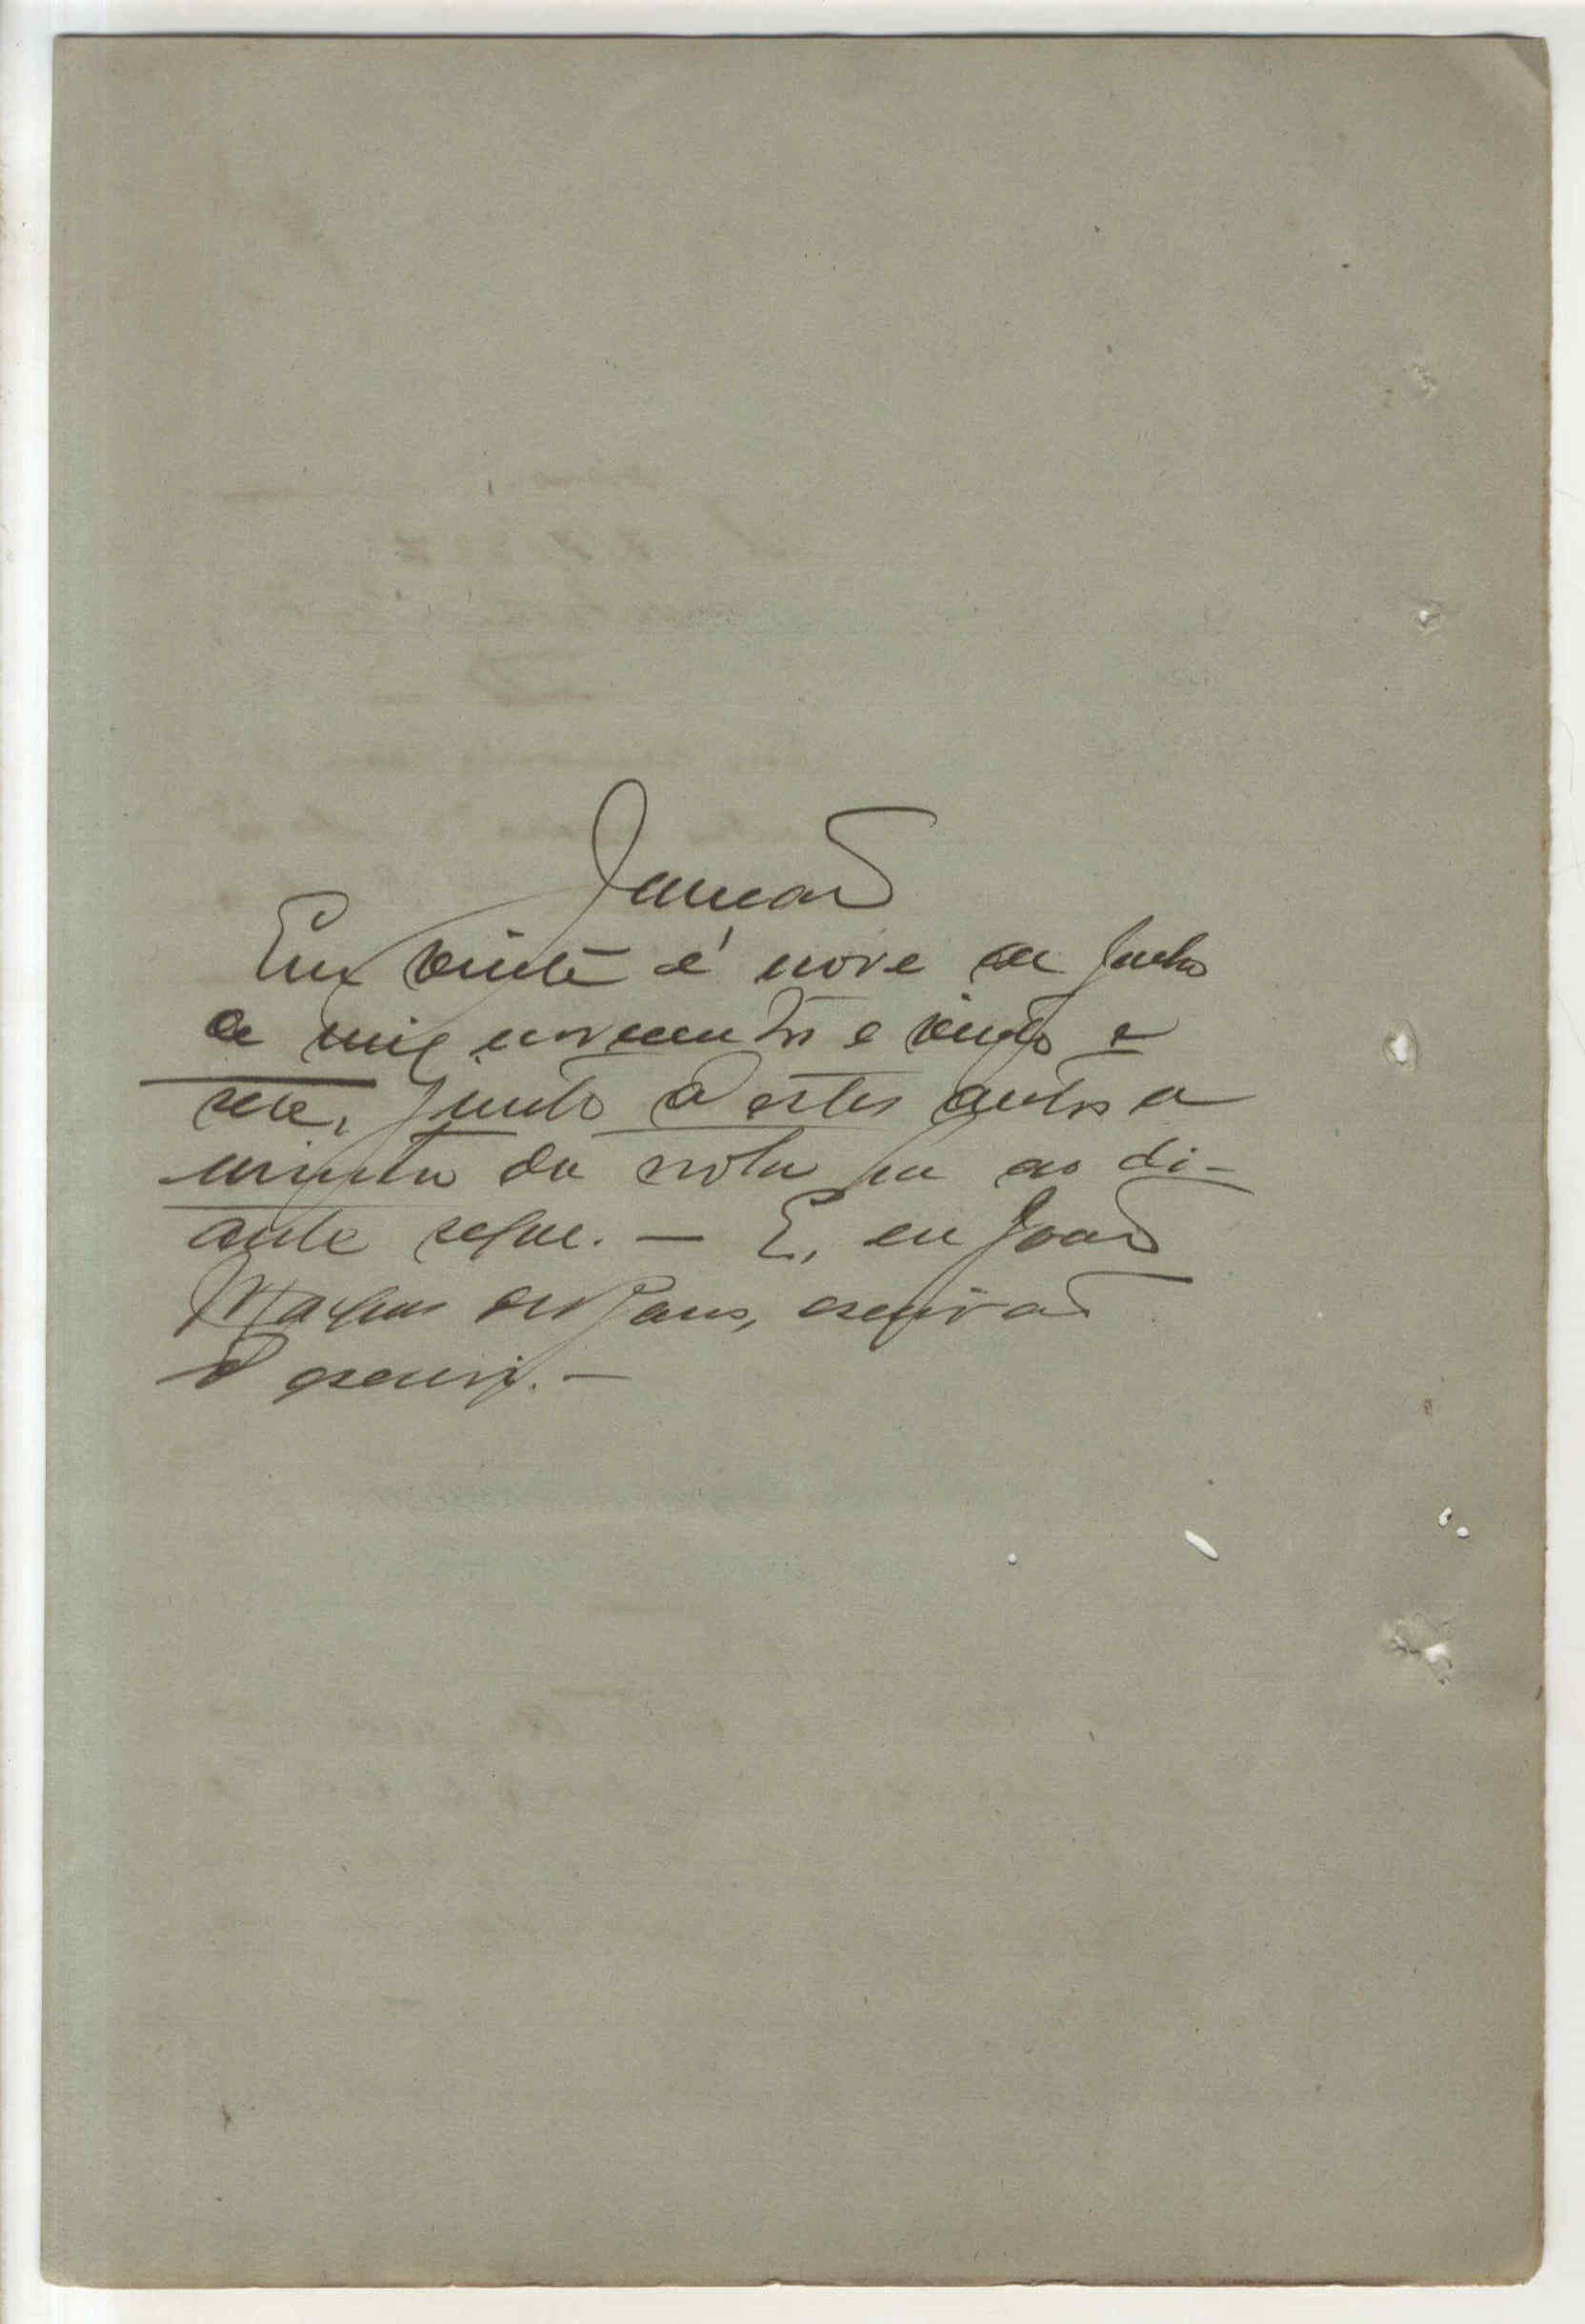 Juncão
Em vinte e nove de Junho
de mil novecentos e vinte e
sete, junto a estes autos a
minuta da nota que ao di-
ante segue. — E, eu João
Marques dos Santos, escrivão
o escrevi. —